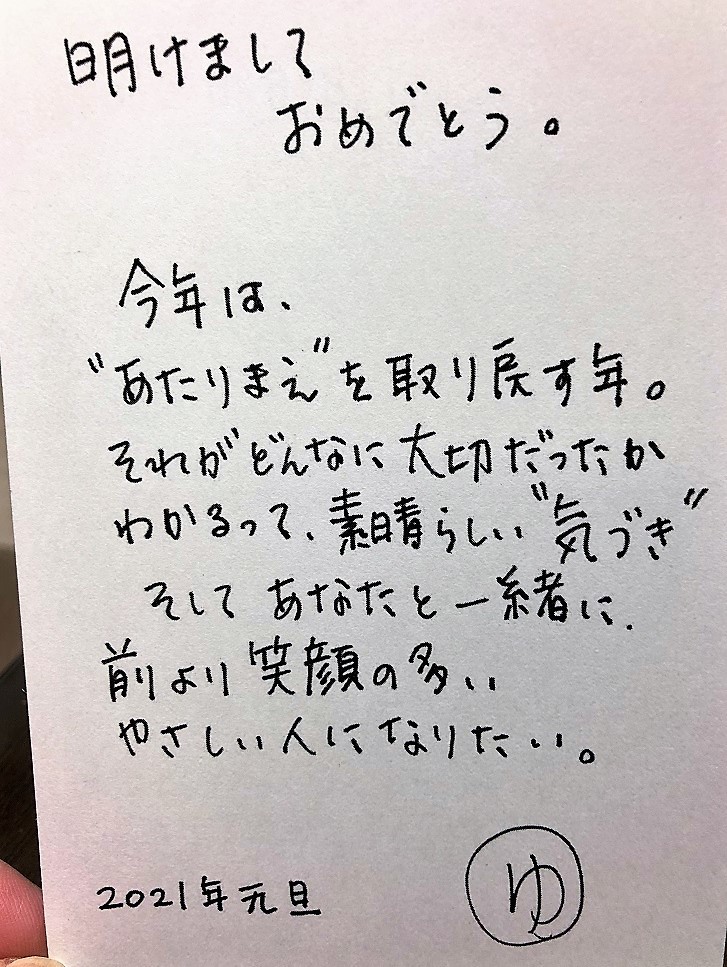 明けまして
おめでとう。
今年は、
"あたりまえ"を取り戻す年。
それがどんなに大切だったか
わかるって、素晴らしい"気づき"
そしてあなたと一緒に、
前より笑顔の多い
やさしい人になりたい。
2021年元旦
ゆ